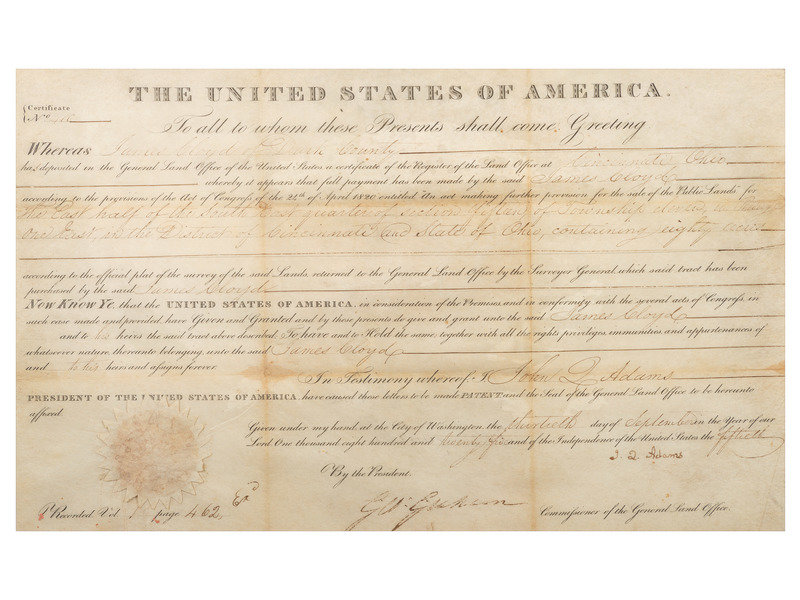 THE UNITED STATES OF AMERICA.
Certificate
No
To all to whom these Presents shall come, Greeting.
Whereas James Cloyd of Darke County
has deposited in the General Land Office of the United States a certificate of the Register of the Land Office at Cincinnati, Ohio
whereby it appears that full payment has been made by the said James Cloyd
according to the provisions of the Act of Congress of the 24th of April 1820 entitled An act making further provision for the sale of the Public Lands for
the East half of the South East quarter of section fifteen of Township eleven in Range
One East, in the District of Cincinnati and State of Ohio, containing eighty acres
according to the official plat of the survey of the said Lands returned to the General Land Office by the Surveyor General, which said tract has been
purchased by the said James Cloyd
Now Know Ye, that the UNITED STATES OF AMERICA, in consideration of the Premises and in conformity with the several acts of Congress, in
such case made and provided, have Given and Granted and by these presents do give and grant unto the said James Cloyd
and to his heirs the said tract above described: To have and to Hold the same, together with all the rights privileges, immunities and appurtenances of
whatsoever nature thereunto belonging, unto the said James Cloyd
and to his heirs and assigns forever. In Testimony whereof I John Q Adams
PRESIDENT OF THE UNITED STATES OF AMERICA, have caused these letters to be made PATENT and the Seal of the General Land Office to be hereunto
affixed
Given under my hand at the City of Washington, the thirtieth day of September in the Year of our
Lord One thousand eight hundred and twenty five and of the Independence of the United States the fiftieth
J. Q. Adams
By the President.
Commissioner of the General Land Office.
Recorded Vol. page 462